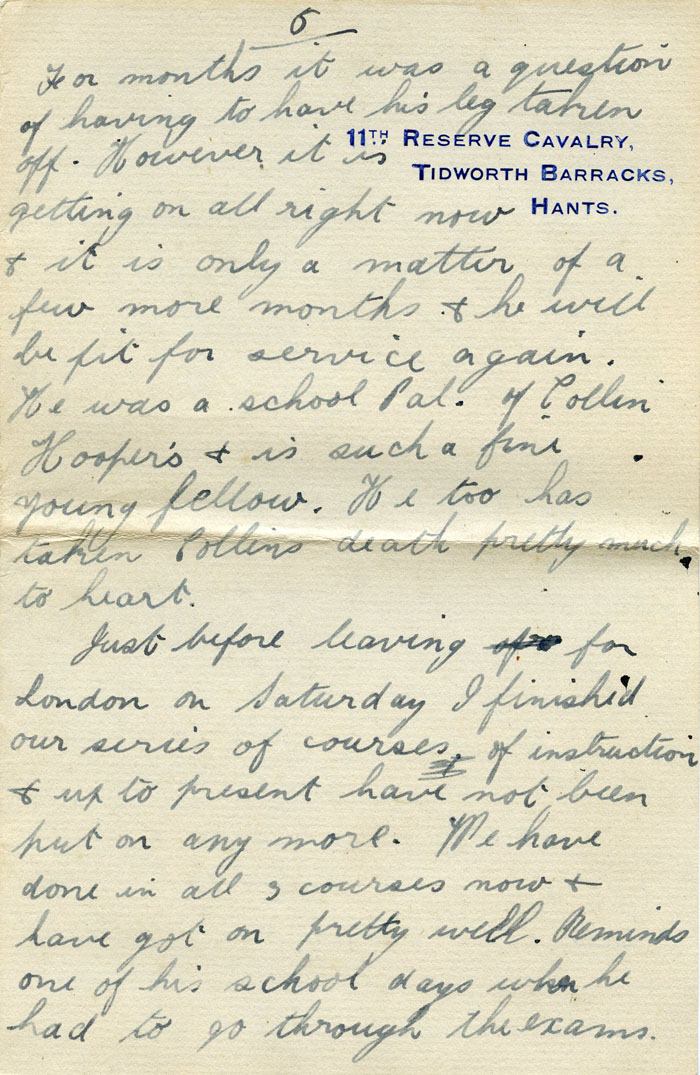 5
For months it was a question
of having to have his leg taken
off. However it is
11TH RESERVE CAVALRY,
TIDWORTH BARRACKS,
HANTS.
getting on all right now
& it is only a matter of a
few more months & he will
be fit for service again.
He was a school Pal. of Collin
Hooper's & is such a fine
young fellow. He too has
taken Collins death pretty much
to heart.
Just before leaving for
London on Saturday I finished
our series of courses, of instruction
& up to present have not been
put on any more. We have
done in all 3 courses now &
have got on pretty well. Reminds
one of his school days when he
had to go through the exams.